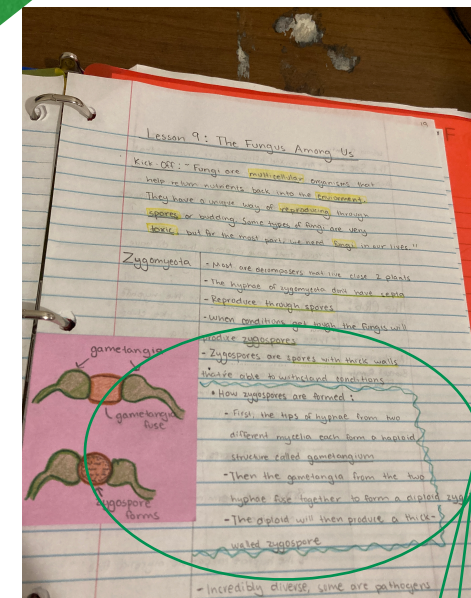 19
F
Lesson 9: The Fungus Among Us
Kick-Off: "Fungi are multicellular organisms that
help return nutrients back into the enviorment.
They have a unique way of reproducing through
spores or budding. Some types of fungi are very
toxic, but for the most part, we need fungi in our lives."
Zygomycota
- Most are decomposers that live close 2 plants
- The hyphae of zygomycota don't have septa
- Reproduce through spores
- When conditions get tough the fungis will
produce zygospores
- Zygospores are spores with thick walls
that're able to withstand conditions
• How zygospores are formed:
- First, the tips of hyphae from two
different mycelia each form a haploid
structure called gametangium
- Then the gametangia from the two
hyphae fuse together to form a diploid zyg
- The diploid will then produce a thick-
walled zygospore
- Incredibly diverse, some are pathogens
gametangia
gametangia
fuse
zygospore
forms